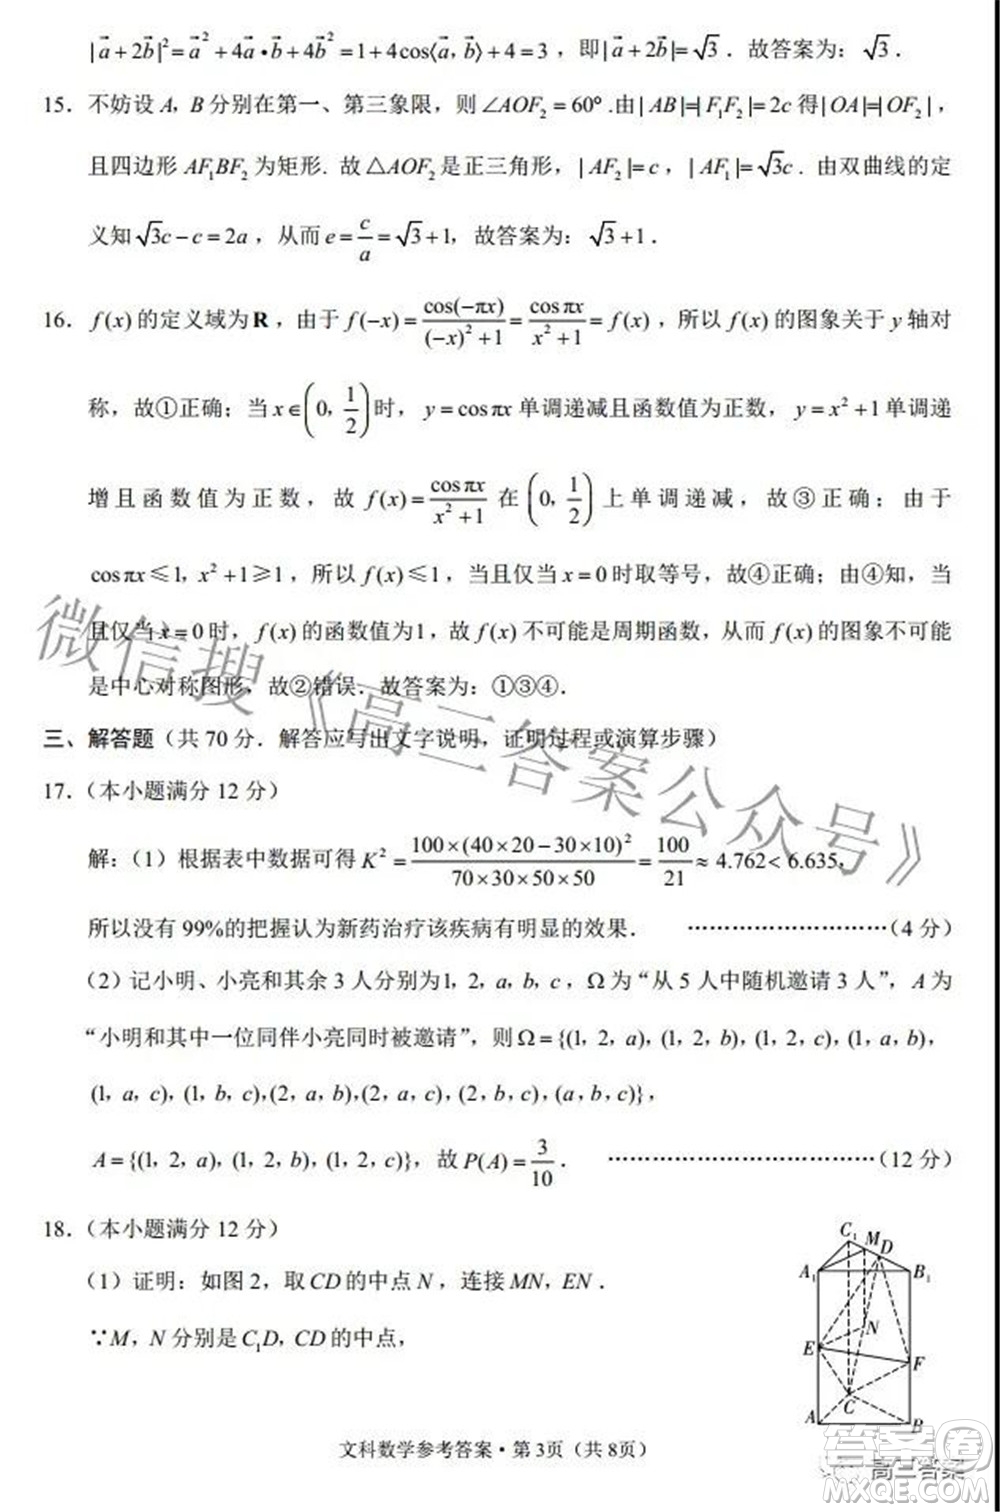 |a⃗+2b⃗|²=a⃗²+4a⃗•b⃗+4b⃗²=1+4cos⟨a⃗, b⃗⟩+4=3，即|a⃗+2b⃗|=√3．故答案为：√3．
15．不妨设 A，B 分别在第一、第三象限，则∠AOF₂=60°.由|AB|=|F₁F₂|=2c 得|OA|=|OF₂|，
且四边形 AF₁BF₂ 为矩形. 故△AOF₂是正三角形，|AF₂|=c，|AF₁|=√3c．由双曲线的定
义知√3c−c=2a，从而 e=c/a=√3+1，故答案为：√3+1．
16．f(x)的定义域为 R，由于 f(−x)=cos(−πx)/((−x)²+1)=cosπx/(x²+1)=f(x)，所以 f(x)的图象关于 y 轴对
称，故①正确；当 x∈(0，1/2)时，y=cosπx 单调递减且函数值为正数，y=x²+1单调递
增且函数值为正数，故 f(x)=cosπx/(x²+1) 在(0，1/2)上单调递减，故③正确；由于
cosπx≤1，x²+1≥1，所以 f(x)≤1，当且仅当 x=0时取等号，故④正确；由④知，当
且仅当 x=0时，f(x)的函数值为1，故 f(x)不可能是周期函数，从而 f(x)的图象不可能
是中心对称图形，故②错误．故答案为：①③④．
三、解答题（共 70 分．解答应写出文字说明，证明过程或演算步骤）
17．（本小题满分 12 分）
解：（1）根据表中数据可得 K²=100×(40×20−30×10)²/(70×30×50×50)=100/21≈4.762<6.635，
所以没有 99%的把握认为新药治疗该疾病有明显的效果． …………………………（4 分）
（2）记小明、小亮和其余 3 人分别为1，2，a，b，c，Ω 为“从 5 人中随机邀请 3 人”，A 为
“小明和其中一位同伴小亮同时被邀请”，则 Ω={(1，2，a)，(1，2，b)，(1，2，c)，(1，a，b)，
(1，a，c)，(1，b，c)，(2，a，b)，(2，a，c)，(2，b，c)，(a，b，c)}，
A={(1，2，a)，(1，2，b)，(1，2，c)}，故 P(A)=3/10． …………………………………（12 分）
18．（本小题满分 12 分）
（1）证明：如图 2，取 CD 的中点 N，连接 MN，EN．
∵M，N 分别是 C₁D，CD 的中点，
C₁
M
D
A₁
B₁
N
E
F
C
A
B
文科数学参考答案·第 3页（共 8页）
微信搜《高三答案公众号》
答案圈
高三答案